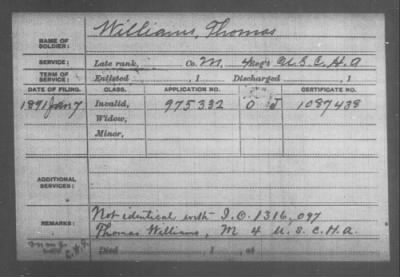 NAME OF SOLDIER: Williams, Thomas
SERVICE: Late rank, Co. M, 4 Reg't U.S.C.H.A
TERM OF SERVICE: Enlisted , 1 Discharged , 1
DATE OF FILING. CLASS. APPLICATION NO. CERTIFICATE NO.
1891 Jan 7 Invalid, 975332 1087438
Widow,
Minor,
ADDITIONAL SERVICES:
REMARKS: Not identical with I.O. 1316,097
Thomas Williams, M 4 U.S.C.H.A.
Died , 1 , at